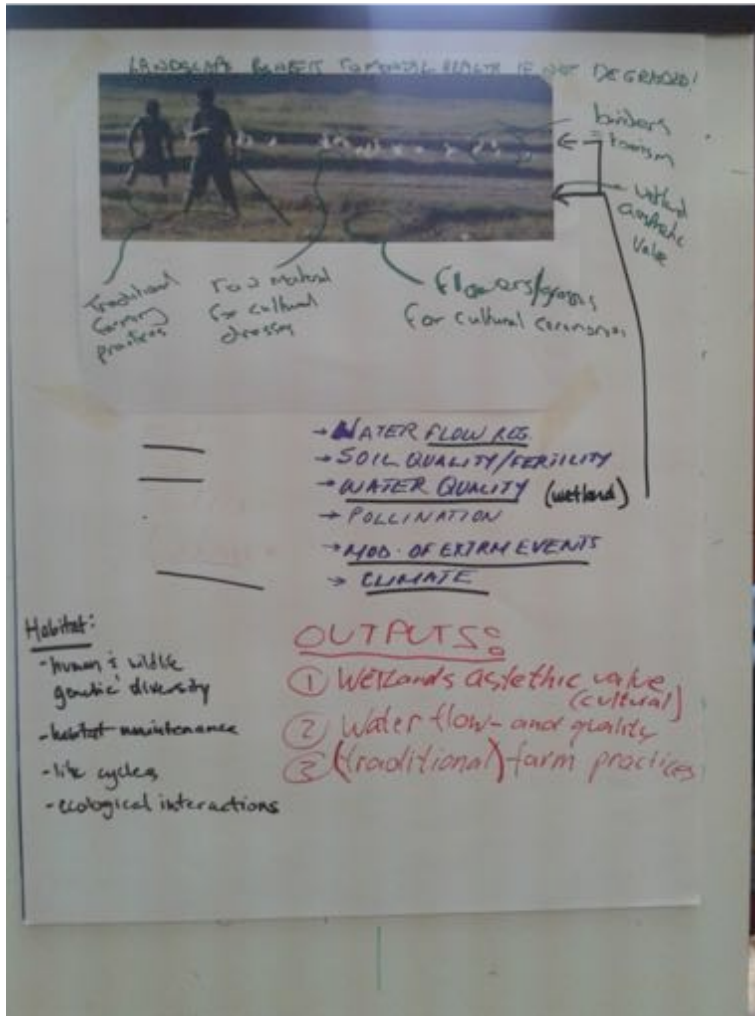 LANDSCAPE BENEFIT TO MENTAL HEALTH IF NOT DEGRADED!
tourism
wetland
aesthetic
value
Traditional
farming
practices
raw material
for cultural
dresses
Flowers/grass
for cultural ceremonies
→ WATER FLOW REG.
→ SOIL QUALITY/FERTILITY
→ WATER QUALITY (wetland)
→ POLLINATION
→ MOD. OF EXTRM EVENTS
→ CLIMATE
Habitat:
- human & wildlife
genetic diversity
- habitat maintenance
- life cycles
- ecological interactions
OUTPUTS:
① Wetlands astethic value
(cultural)
② Water flow- and quality
③ (traditional) farm practices